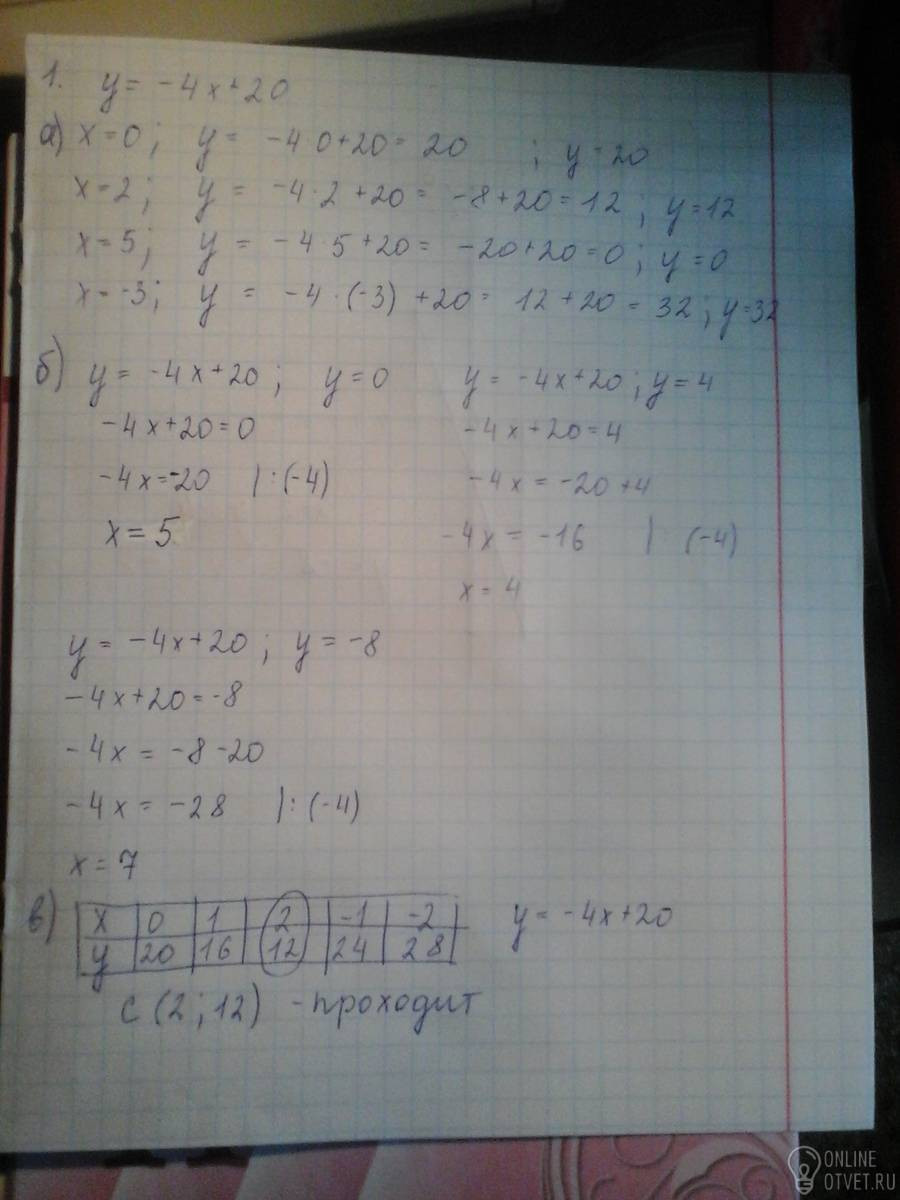 1. y = -4x+20
а) x=0; y = -4 0+20= 20 ; y=20
x=2; y = -4·2+20= -8+20=12; y=12
x=5; y = -4·5+20= -20+20=0; y=0
x=-3; y = -4·(-3)+20= 12+20=32; y=32
б) y = -4x+20; y=0
-4x+20=0
-4x=-20 |:(-4)
x=5
y = -4x+20; y=4
-4x+20=4
-4x = -20+4
-4x = -16 | (-4)
x=4
y = -4x+20; y=-8
-4x+20=-8
-4x = -8-20
-4x = -28 |:(-4)
x=7
в) x 0 1 2 -1 -2
y 20 16 12 24 28
y = -4x+20
C(2;12) - проходит
ONLINE
OTVET.RU